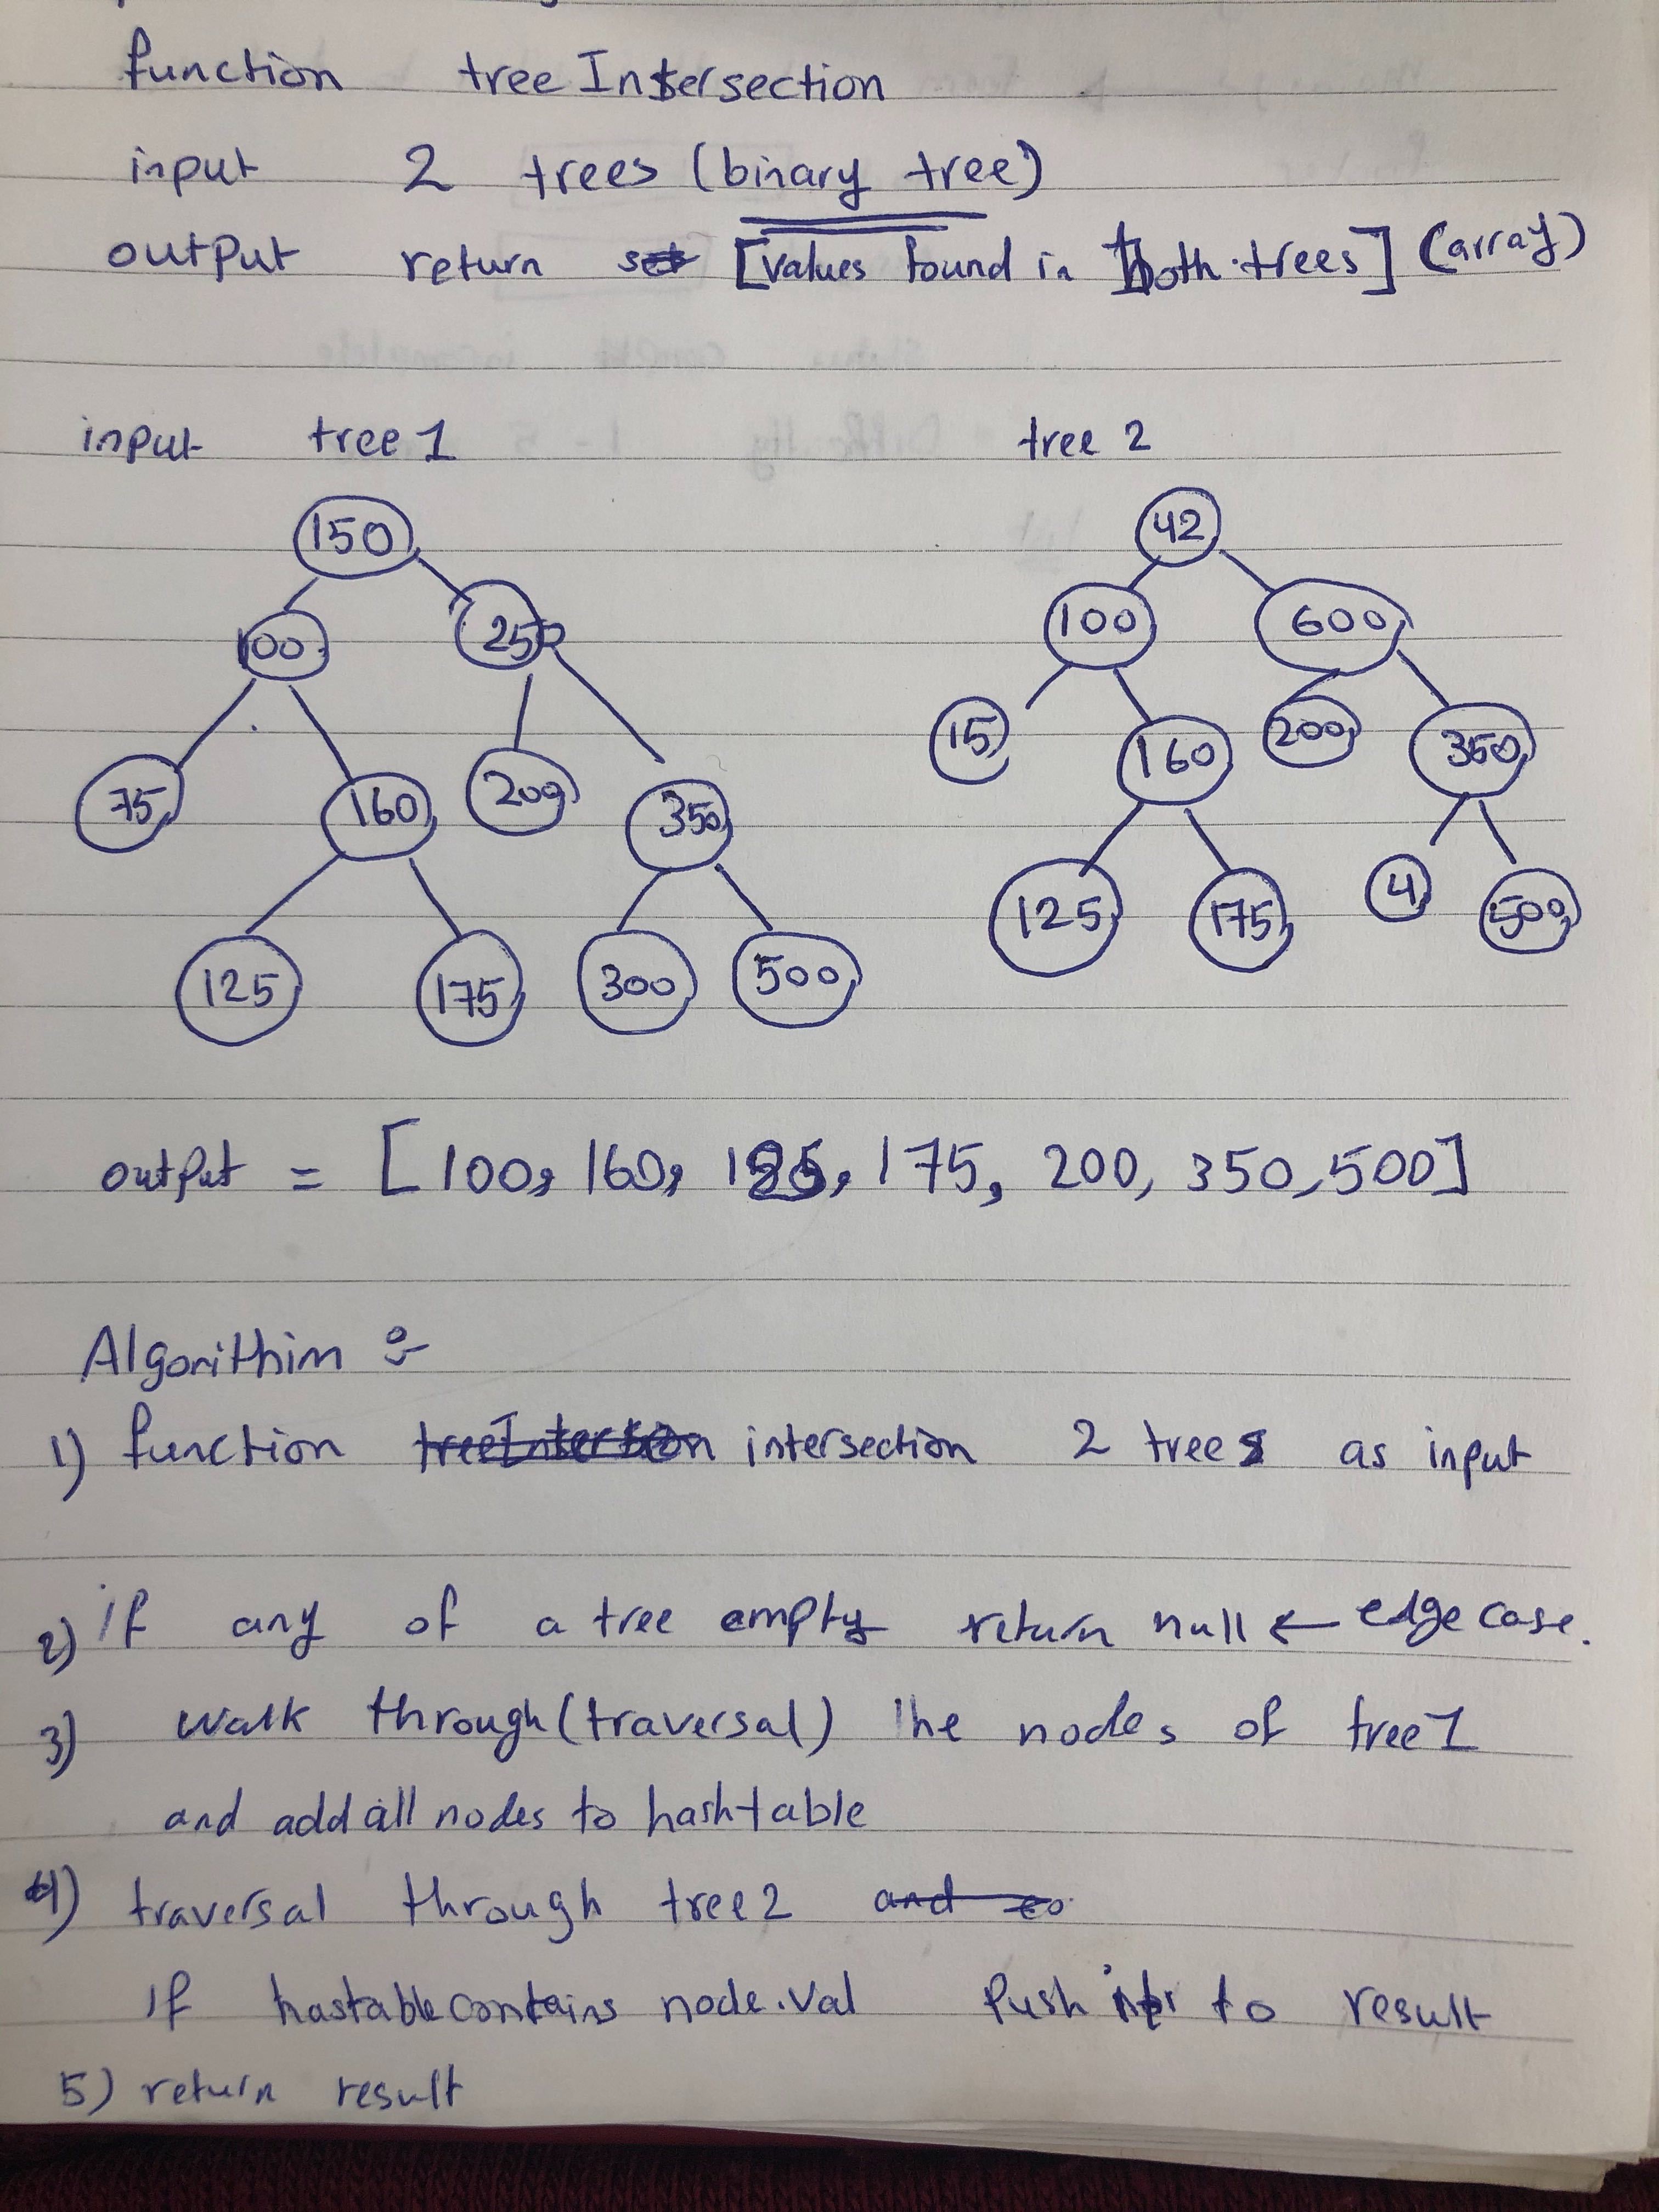 function tree Intersection
input 2 trees (binary tree)
output return set [values found in both trees] (array)
input tree 1 tree 2
150 42
100 250 100 600
75 160 200 350 15 160 200 350
125 175 300 500 125 175 4 500
output = [100, 160, 125, 175, 200, 350, 500]
Algorithim :-
1) function treeIntersection intersection 2 trees as input
2) if any of a tree empty return null ← edge case.
3) walk through (traversal) the nodes of tree 1
and add all nodes to hashtable
4) traversal through tree 2 and
if hastable contains node.val push to result
5) return result